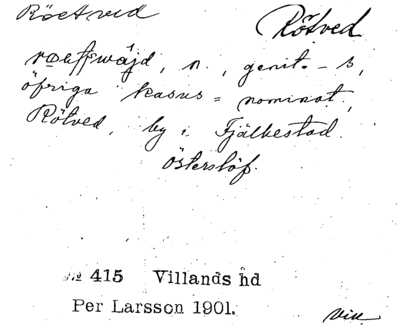 Röetved
Rötved
röeffwàjd, n., genit. - s,
öfriga kasus = nominat.,
Rötved, by i Fjälkestad.
Österslöf.
№ 415 Villands hd
Per Larsson 1901.
Vill